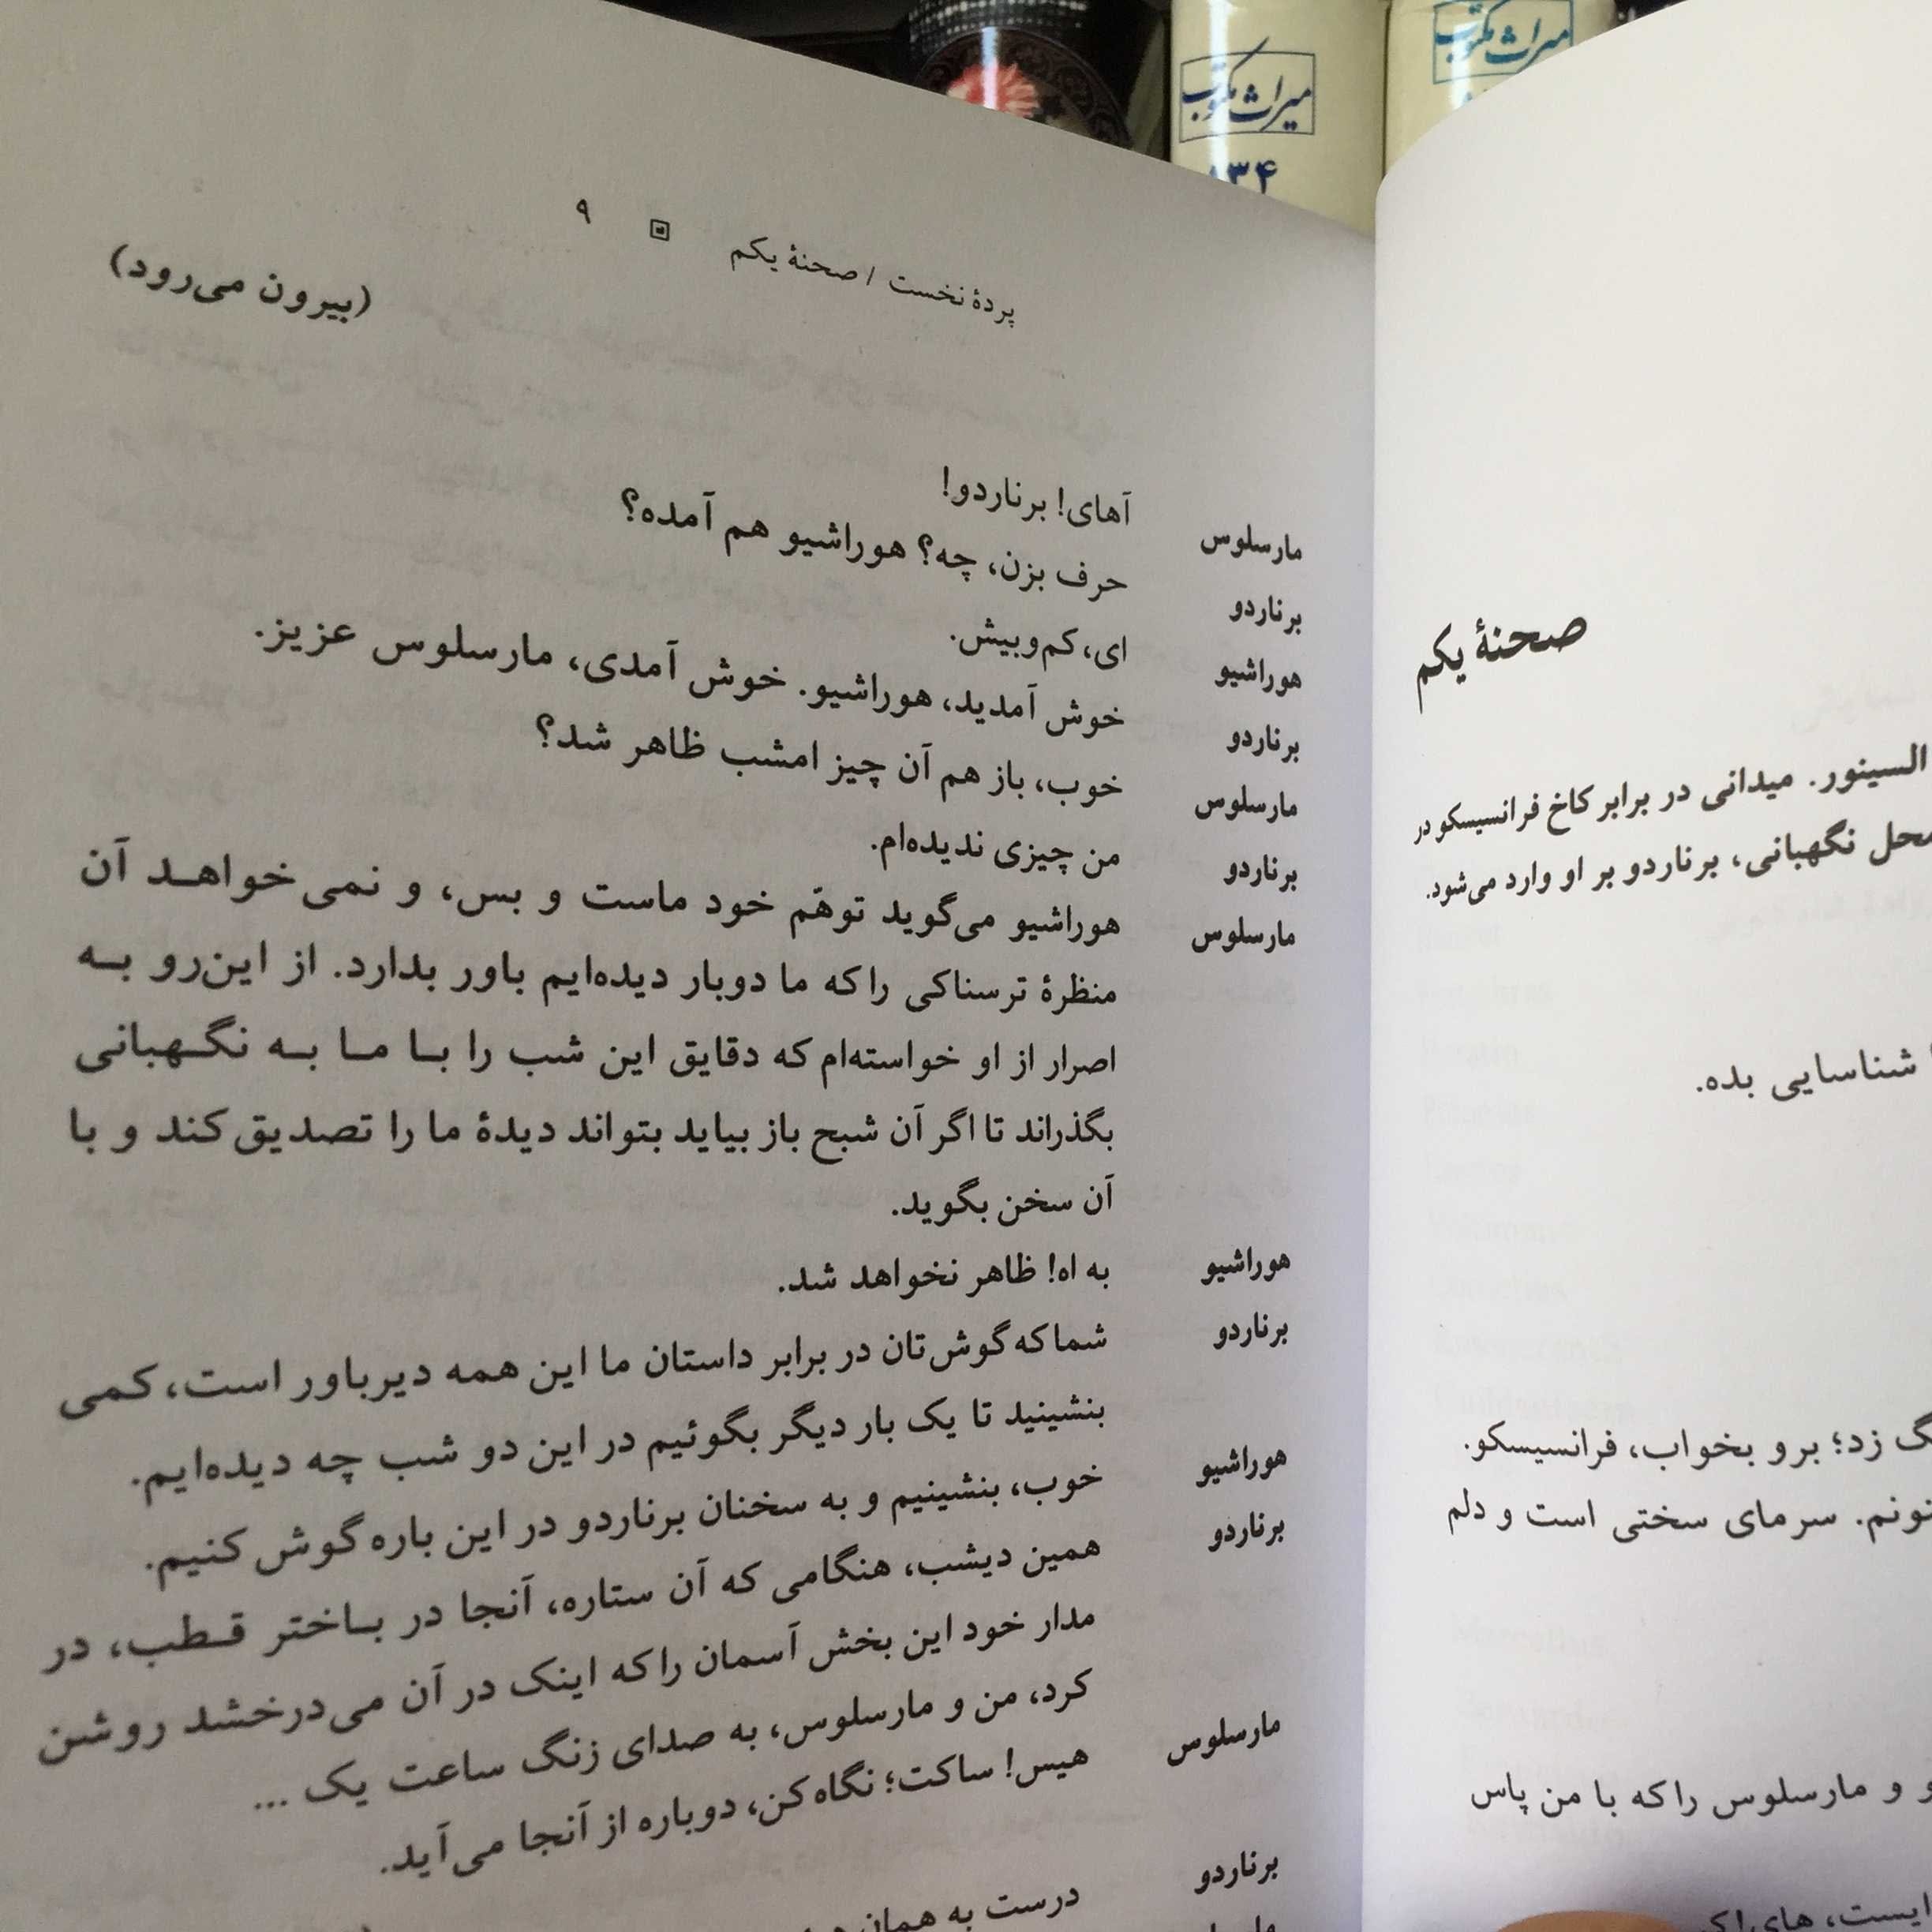 میراث مکتوب
میراث مکتوب
صحنهٔ یکم
السینور. میدانی در برابر کاخ فرانسیسکو در
محل نگهبانی، برناردو بر او وارد می‌شود.
شناسایی بده.
زد؛ برو بخواب، فرانسیسکو.
سرمای سختی است و دلم
و مارسلوس را که با من پاس
پردهٔ نخست / صحنهٔ یکم ۹
(بیرون می‌رود)
مارسلوس آهای! برناردو!
برناردو حرف بزن، چه؟ هوراشیو هم آمده؟
هوراشیو ای، کم‌وبیش.
برناردو خوش آمدید، هوراشیو. خوش آمدی، مارسلوس عزیز.
مارسلوس خوب، باز هم آن چیز امشب ظاهر شد؟
برناردو من چیزی ندیده‌ام.
مارسلوس هوراشیو می‌گوید توهّم خود ماست و بس، و نمی‌خواهد آن
منظرهٔ ترسناکی را که ما دوبار دیده‌ایم باور بدارد. از این‌رو به
اصرار از او خواسته‌ام که دقایق این شب را با ما به نگهبانی
بگذراند تا اگر آن شبح باز بیاید بتواند دیدهٔ ما را تصدیق کند و با
آن سخن بگوید.
هوراشیو به اه! ظاهر نخواهد شد.
برناردو شما که گوش‌تان در برابر داستان ما این همه دیرباور است، کمی
بنشینید تا یک بار دیگر بگوئیم در این دو شب چه دیده‌ایم.
هوراشیو خوب، بنشینیم و به سخنان برناردو در این باره گوش کنیم.
برناردو همین دیشب، هنگامی که آن ستاره، آنجا در باختر قطب، در
مدار خود این بخش آسمان را که اینک در آن می‌درخشد روشن
کرد، من و مارسلوس، به صدای زنگ ساعت یک ...
مارسلوس هیس! ساکت؛ نگاه کن، دوباره از آنجا می‌آید.
برناردو درست به همان